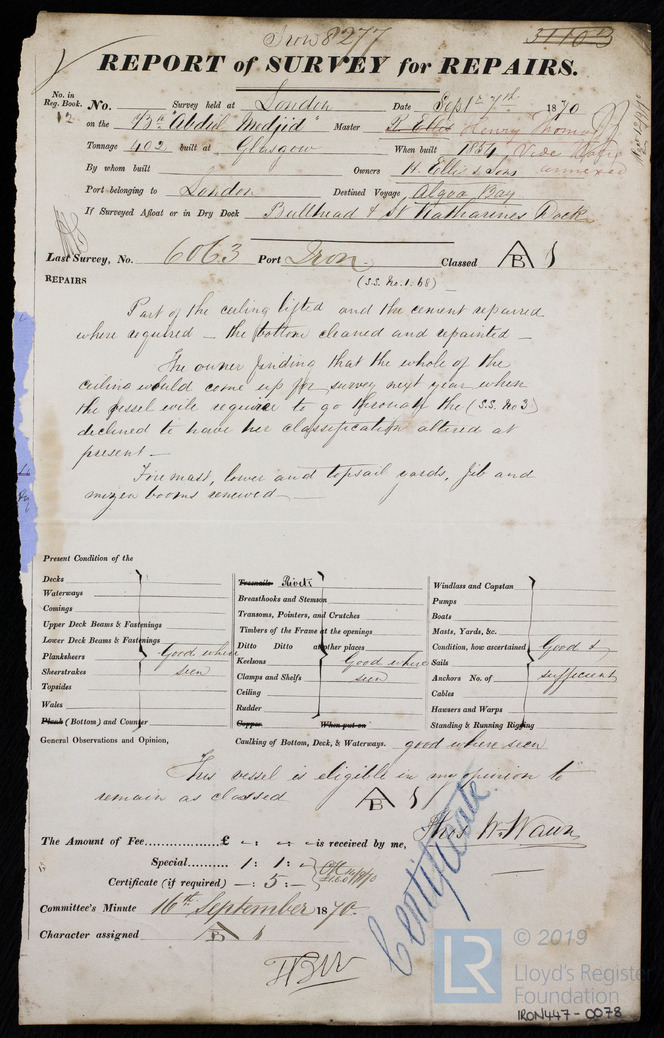 Iron 8277
31103
REPORT of SURVEY for REPAIRS.
No. in Reg. Book. No. Survey held at London Date Sept 7th 1870
12 on the "Abdul Medjid" Master R. Ellis Henry Thomas
Tonnage 402 built at Glasgow When built 1854
By whom built Owners H. Ellis & Sons annexed
Port belonging to London Destined Voyage Algoa Bay
If Surveyed Afloat or in Dry Dock Bullhead & St Katharines Dock
Last Survey, No. 6063 Port Iron Classed A B 1
REPAIRS (S.S. No. 1-68)
Part of the ceiling lifted and the cement repaired
where required - the bottom cleaned and repainted -
The owner finding that the whole of the
ceiling would come up for survey next year when
the vessel will require to go through the (S.S. No 3)
declined to have her classification altered at
present -
Foremast, lower and topsail yards, Jib and
mizen booms renewed
Present Condition of the
Decks
Waterways
Comings
Upper Deck Beams & Fastenings
Lower Deck Beams & Fastenings
Planksheers Good where
Sheerstrakes seen
Topsides
Wales
Plank (Bottom) and Counter
Treenails Rivets
Breasthooks and Stemson
Transoms, Pointers, and Crutches
Timbers of the Frame at the openings
Ditto Ditto at other places
Keelsons Good where
Clamps and Shelfs seen
Ceiling
Rudder
Copper When put on
Windlass and Capstan
Pumps
Boats
Masts, Yards, &c.
Condition, how ascertained Good &
Sails
Anchors No. of sufficient
Cables
Hawsers and Warps
Standing & Running Rigging
General Observations and Opinion, Caulking of Bottom, Deck, & Waterways. good where seen
This vessel is eligible in my opinion to
remain as classed A B 1
The Amount of Fee £ - : - : - is received by me,
Thos W. Wawn
Special 1 : 1 : -
Certificate (if required) - : 5 : -
Certificate
Committee's Minute 16th September 1870
Character assigned A B 1
LR © 2019
Lloyd's Register
Foundation
IRON447-0078